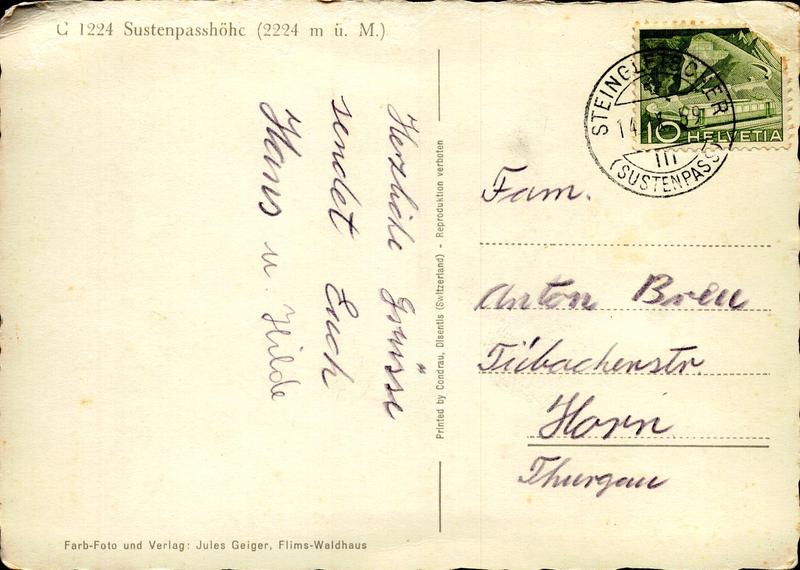 C 1224 Sustenpasshöhe (2224 m ü. M.)
Herzliche Grüsse
sendet Euch
Hans u. Hilde
Printed by Condrau, Disentis (Switzerland) - Reproduktion verboten
STEINGLETSCHER
(SUSTENPASS)
10 HELVETIA
Fam.
Anton
Tübacherstr.
Horn
Thurgau
Farb-Foto und Verlag: Jules Geiger, Flims-Waldhaus